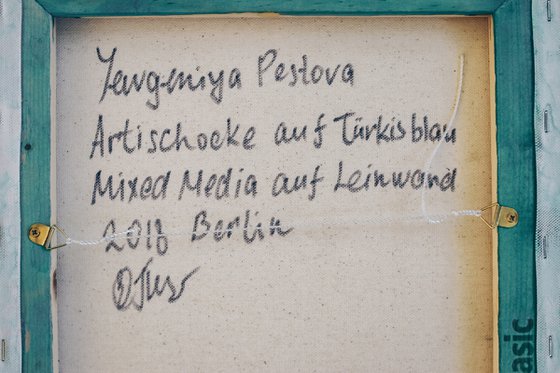 Jewgeniya Pestova
Artischocke auf Türkisblau
Mixed Media auf Leinwand
2018 Berlin
asic